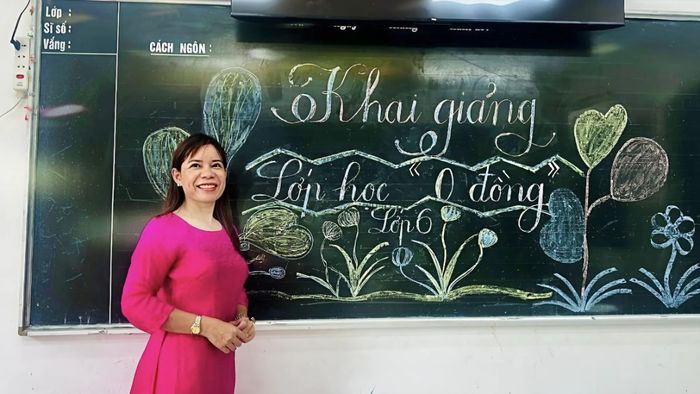 Lớp :
Sĩ số :
Vắng :
CÁCH NGÔN :
Khai giảng
Lớp học "0 đồng"
Lớp 6